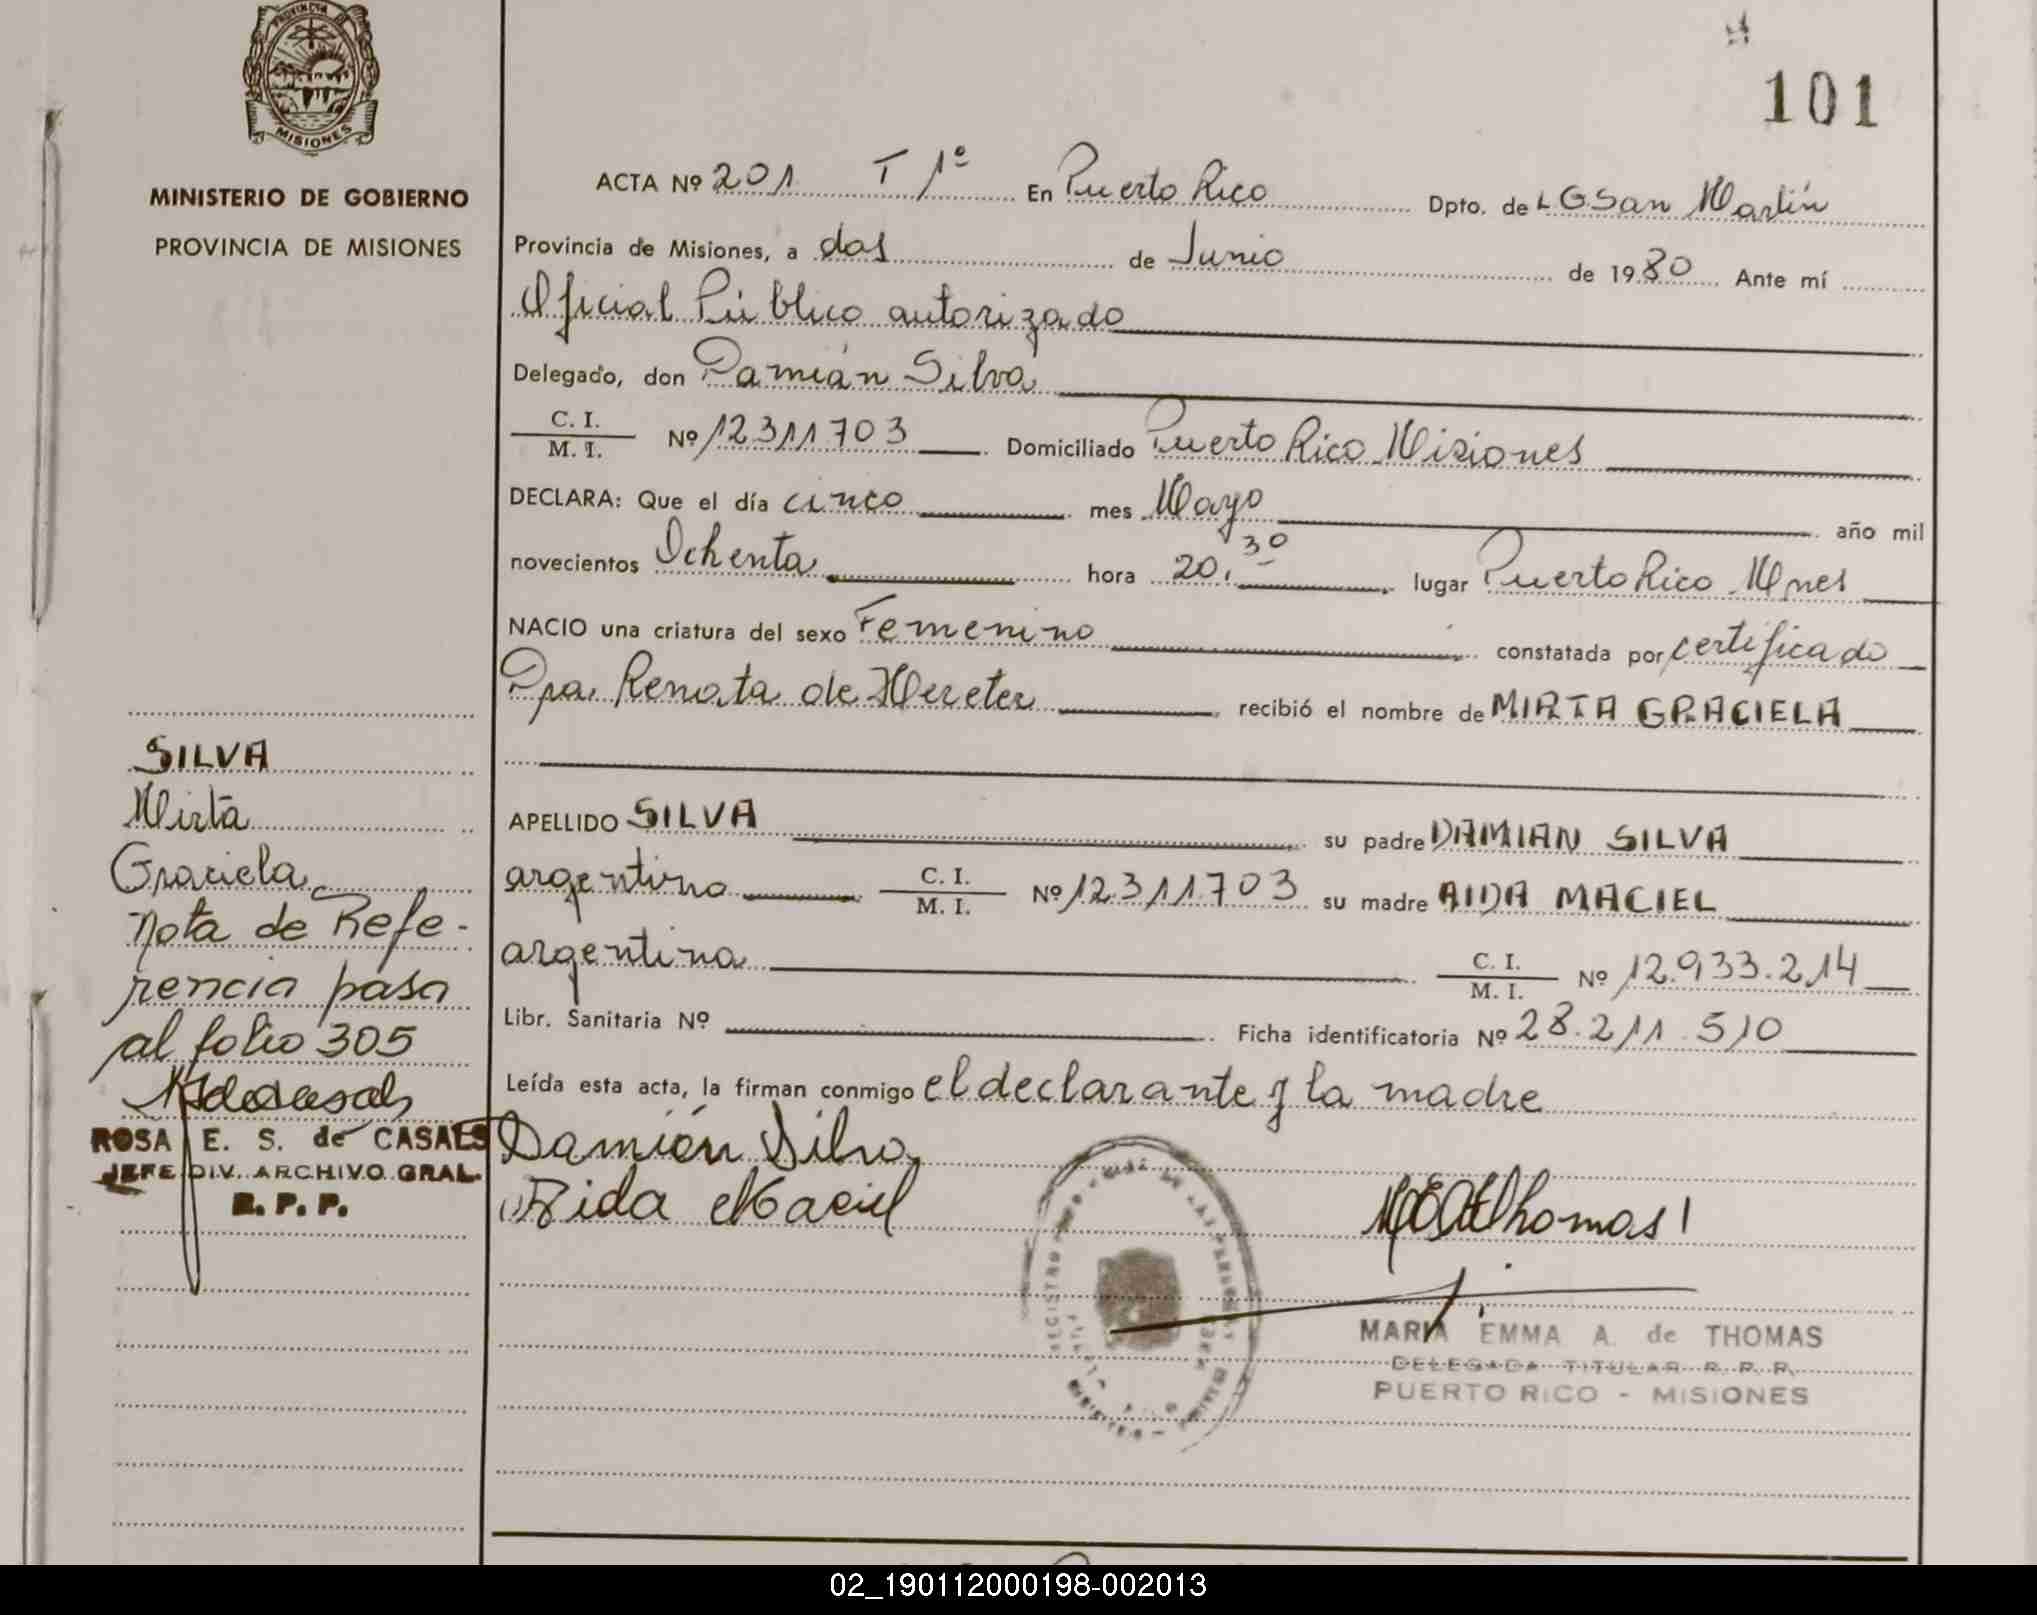 PROVINCIA DE
MISIONES
MINISTERIO DE GOBIERNO
PROVINCIA DE MISIONES
101
ACTA Nº 201 T 1º En Puerto Rico Dpto. de L G San Martín
Provincia de Misiones, a dos de Junio de 1980 Ante mí
Oficial Público autorizado
Delegado, don Damián Silva
C. I.
M. I. Nº 12311703 Domiciliado Puerto Rico Misiones
DECLARA: Que el día cinco mes Mayo año mil
novecientos Ochenta hora 20,30 lugar Puerto Rico Mnes
NACIO una criatura del sexo Femenino constatada por certificado
Dra. Renata de Hereter recibió el nombre de MIRTA GRACIELA
APELLIDO SILVA su padre DAMIAN SILVA
argentino C. I. M. I. Nº 12311703 su madre AIDA MACIEL
argentina C. I. M. I. Nº 12.933.214
Libr. Sanitaria Nº Ficha identificatoria Nº 28.211.510
Leída esta acta, la firman conmigo el declarante y la madre
Damián Silva
Aida Maciel
MEAdeThomas
MARIA EMMA A. de THOMAS
DELEGADA TITULAR R. P. P.
PUERTO RICO - MISIONES
SILVA
Mirta
Graciela
Nota de Refe-
rencia pasa
al folio 305
ROSA E. S. de CASALS
JEFE DIV. ARCHIVO GRAL.
R. P. P.
02_190112000198-002013